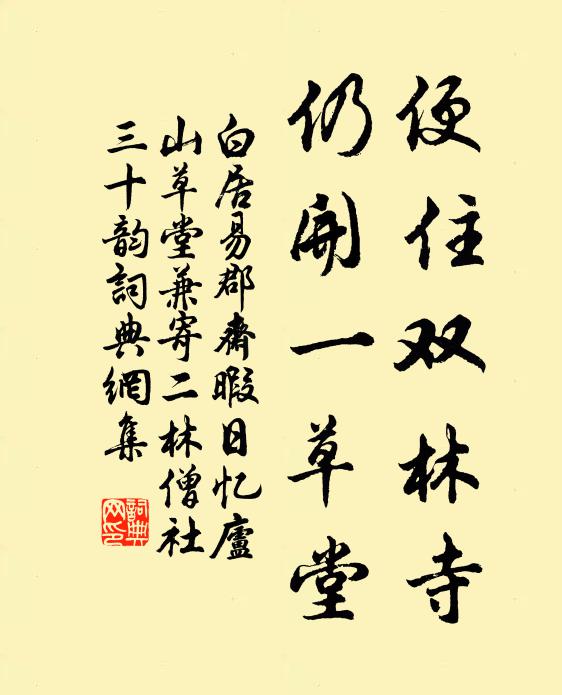 便住双林寺
仍開一草堂
白居易郡齋暇日忆廬
山草堂兼寄二林僧社
三十韵詞典網集
詞典
网印